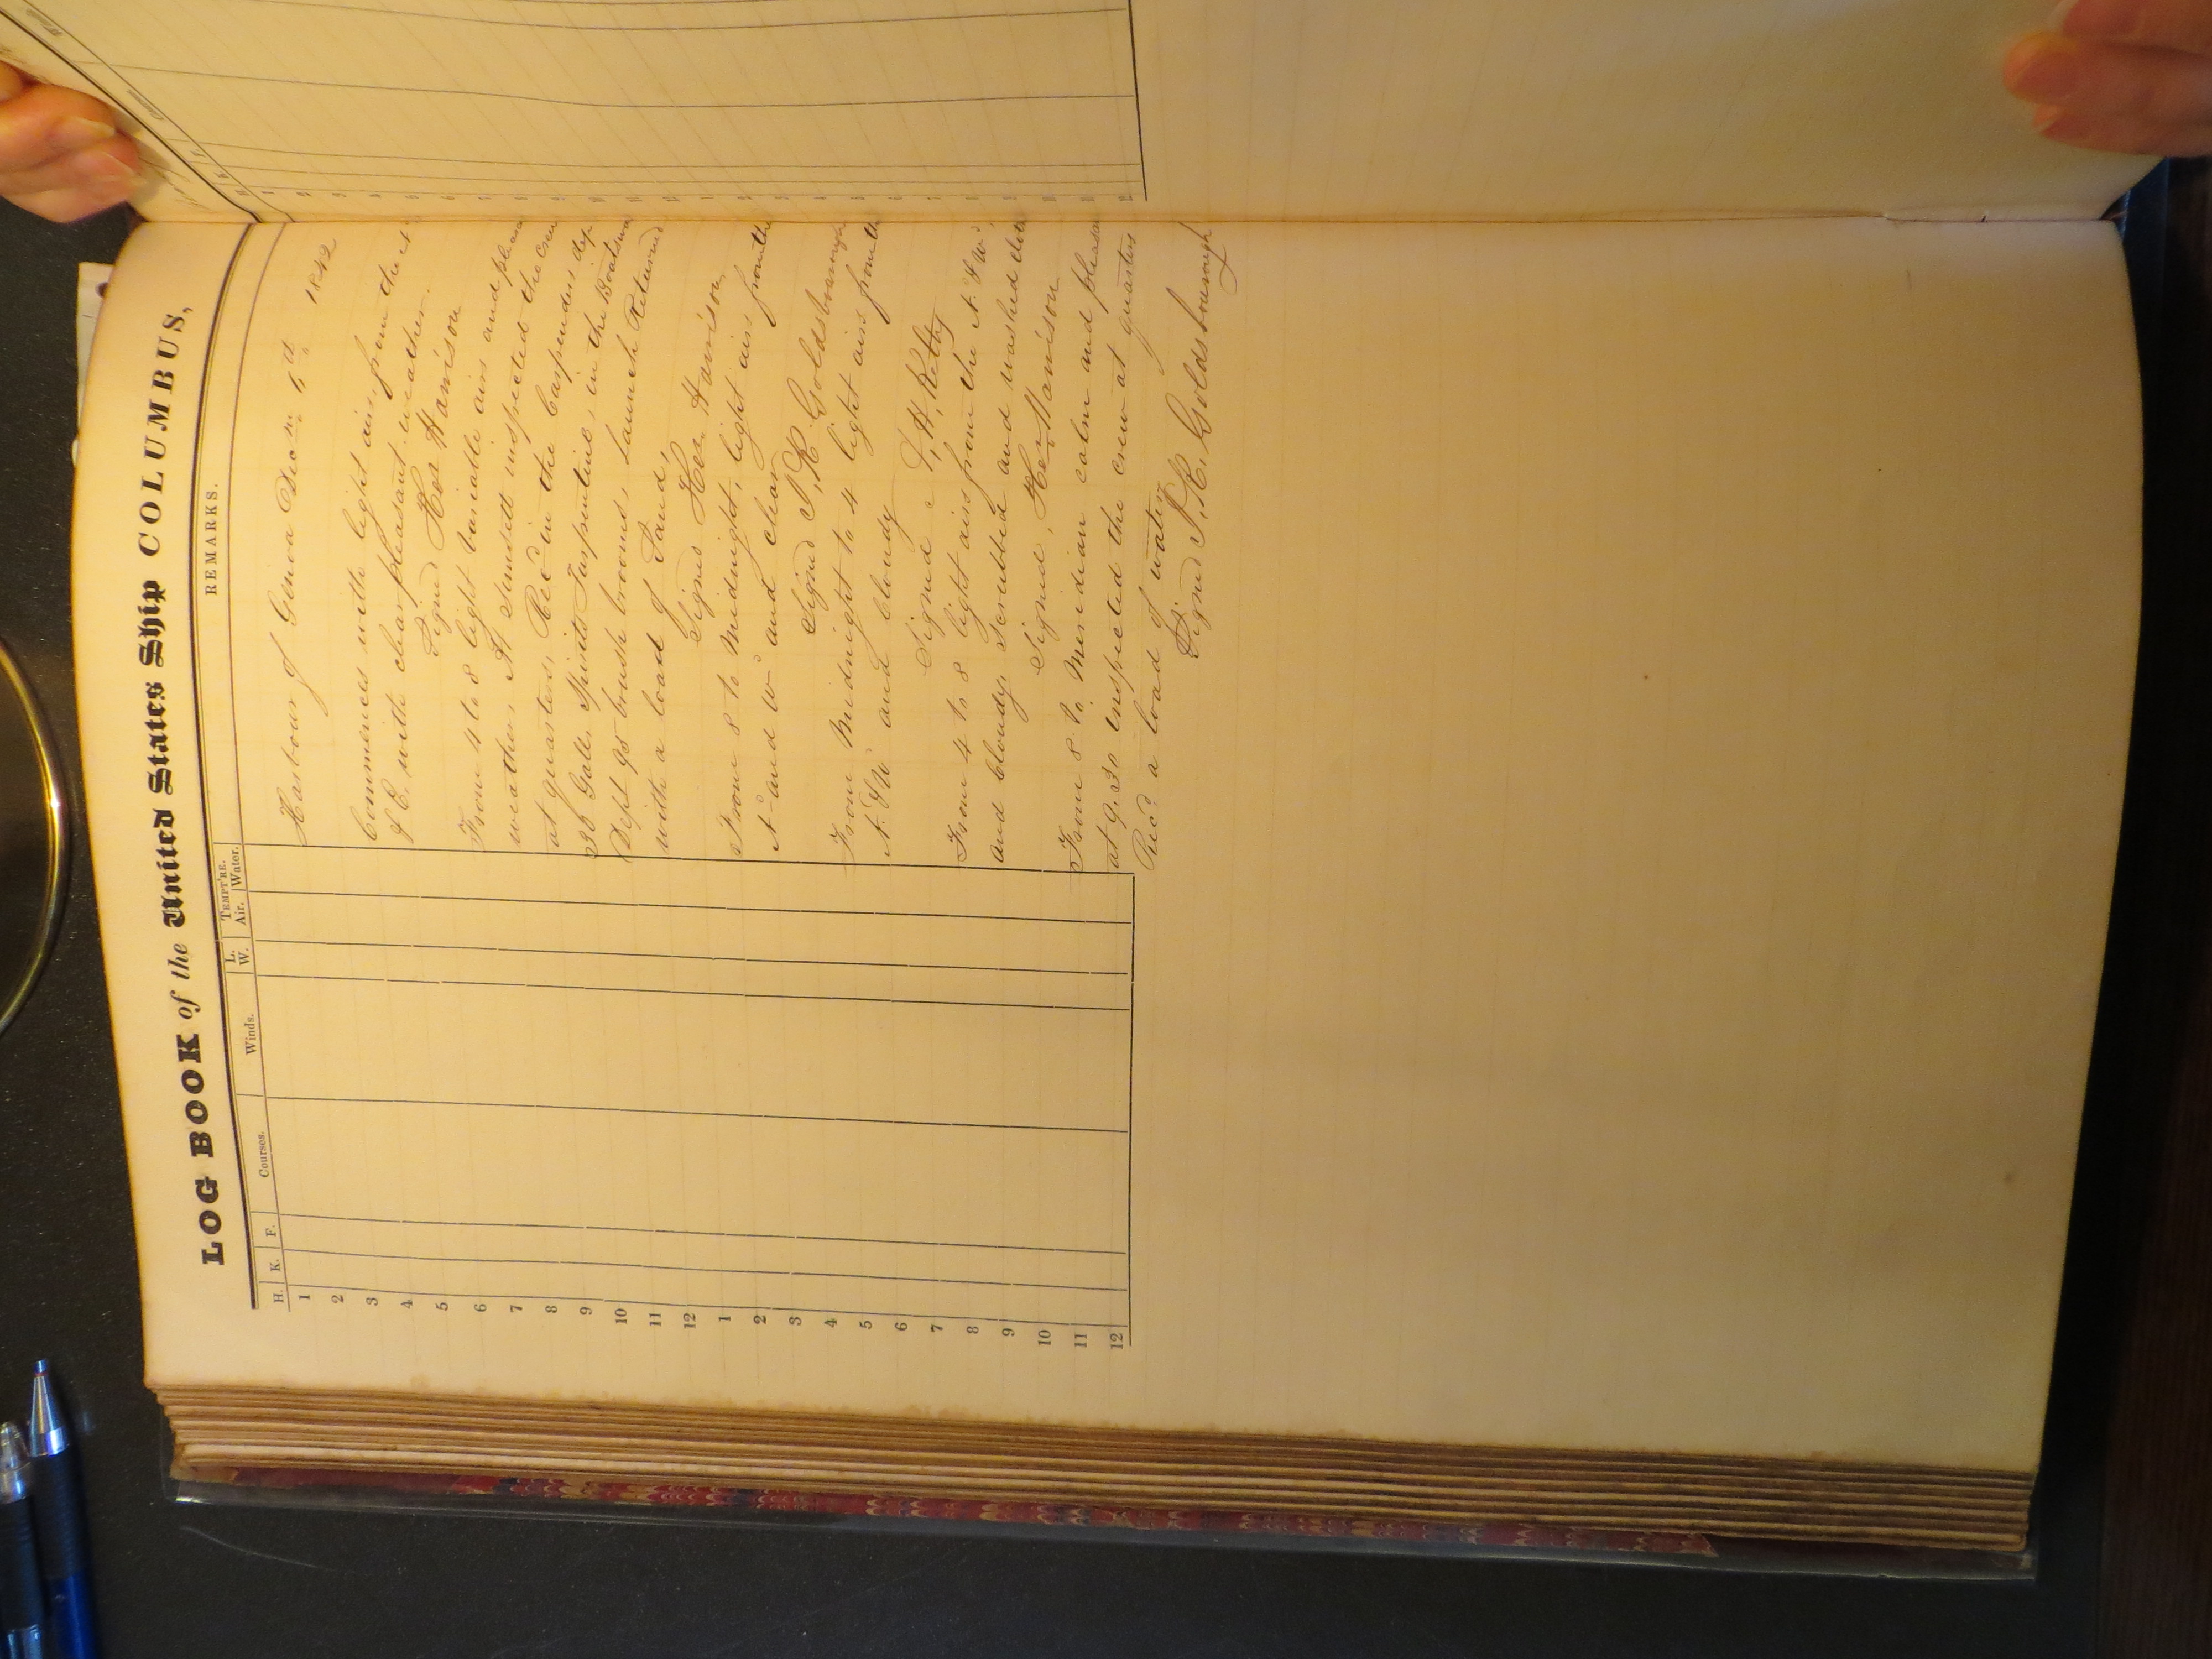 LOG BOOK of the United States Ship COLUMBUS,
H. K. F. Courses. Winds. L. W. TEMPT'RE. Air. Water. REMARKS.
1
2
3
4
5
6
7
8
9
10
11
12
1
2
3
4
5
6
7
8
9
10
11
12
Harbour of Genoa Decm. 6th 1842
Commences with light airs from the
& E. with clear pleasant weather.
Signed Harrison
From 4 to 8 light variable airs and
weather, At Sunsett inspected the crew
at quarters, Rec'd in the Carpenders dep
36 Galls. Spirits Turpentine, in the Boatswa
Dept 98 brush brooms, Launch Returned
with a load of Sand,
Signed Harrison
From 8 to Midnight, light airs from the
N-and W- and clear
Signed J. R. Goldsborough
From Midnight to 4 light airs from th
N. & W and Cloudy
Signed
From 4 to 8 light airs from the N. & W
and cloudy, Scrubbed and washed
Signed, Harrison
From 8 to Meridian calm and pleasa
at 9.30 inspected the crew at quarters
Rec'd a load of water
Signed J. R. Goldsborough